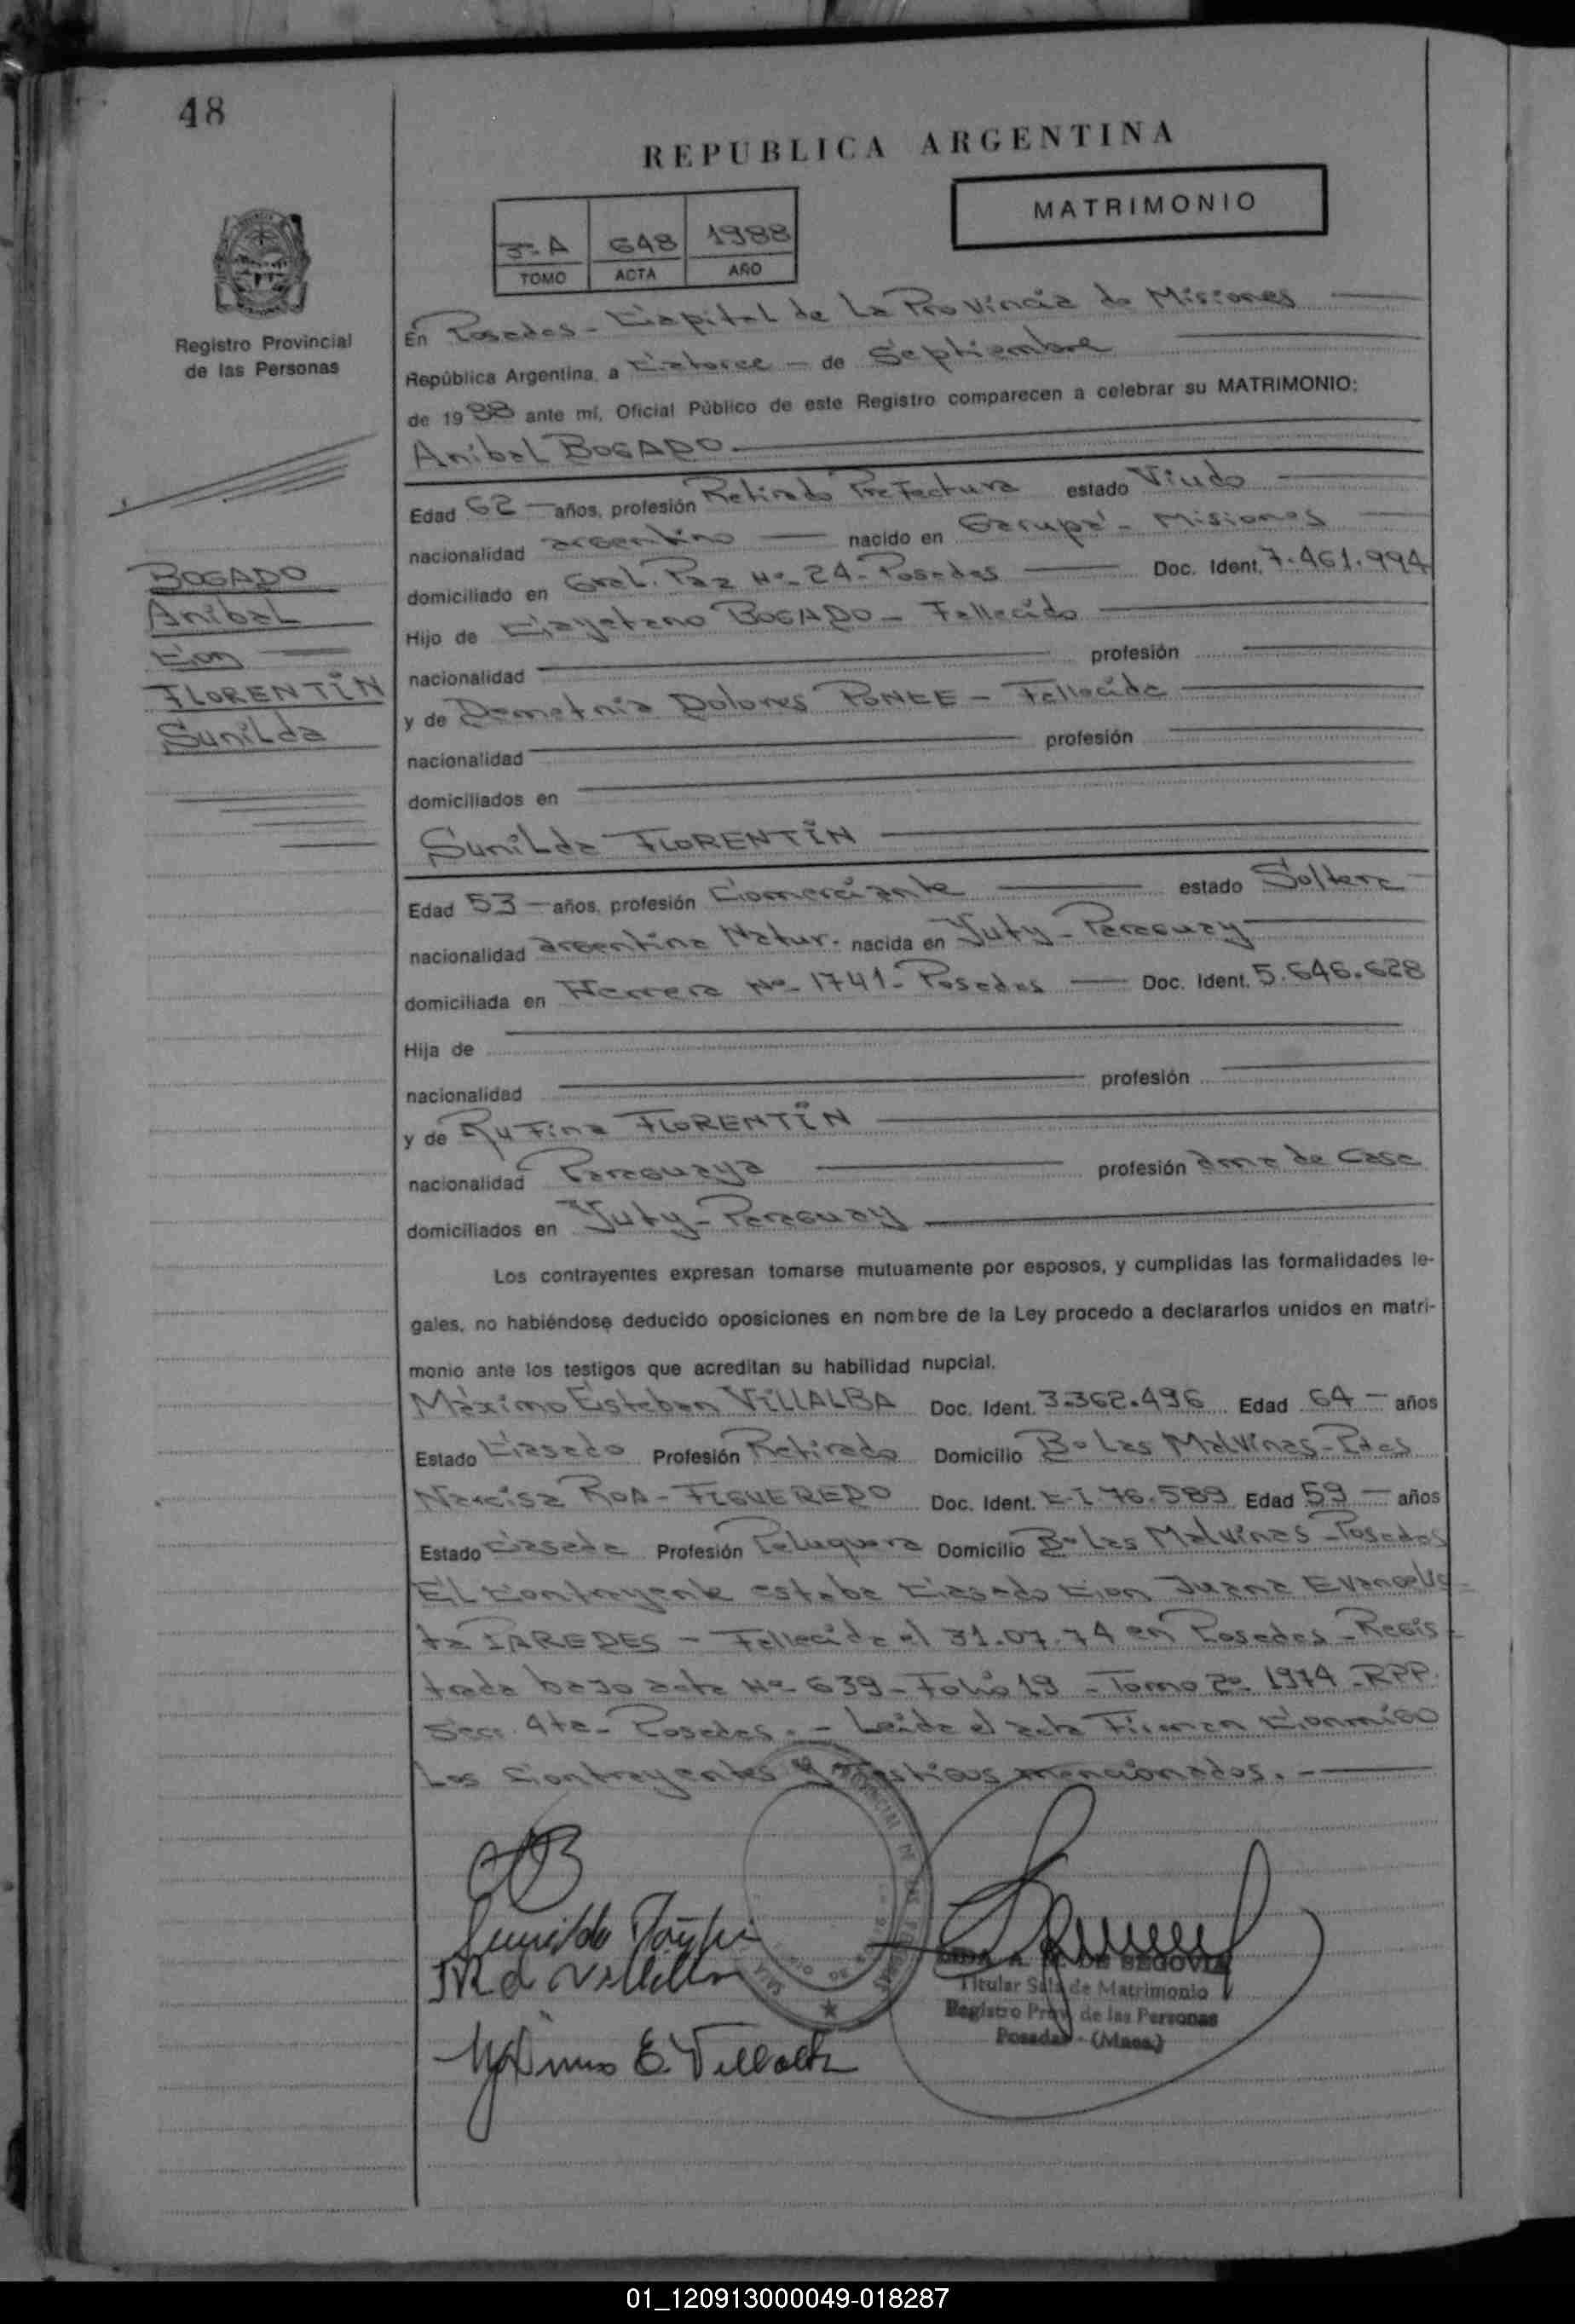 48
REPUBLICA ARGENTINA
MATRIMONIO
3º A 648 1988
TOMO ACTA AÑO
Registro Provincial
de las Personas
En Posadas - Capital de La Provincia de Misiones
República Argentina, a Catorce - de Septiembre
de 1988 ante mí, Oficial Público de este Registro comparecen a celebrar su MATRIMONIO:
Anibal BOGADO.
Edad 62 - años, profesión Retirado Prefectura estado Viudo
nacionalidad argentino nacido en Garupá - Misiones
domiciliado en Gral. Paz Nº 24 - Posadas Doc. Ident. 7.461.994
Hijo de Cayetano BOGADO - Fallecido
nacionalidad profesión
y de Demetria Dolores PONCE - Fallecida
nacionalidad profesión
domiciliados en
BOGADO
Anibal
Con
FLORENTIN
Sunilda
Sunilda FLORENTIN
Edad 53 - años, profesión Comerciante estado Soltera
nacionalidad argentina Natur. nacida en Yuty - Paraguay
domiciliada en Herrera Nº 1741 - Posadas Doc. Ident. 5.646.628
Hija de
nacionalidad profesión
y de Rufina FLORENTIN
nacionalidad Paraguaya profesión ama de Casa
domiciliados en Yuty - Paraguay
Los contrayentes expresan tomarse mutuamente por esposos, y cumplidas las formalidades le-
gales, no habiéndose deducido oposiciones en nombre de la Ley procedo a declararlos unidos en matri-
monio ante los testigos que acreditan su habilidad nupcial.
Máximo Esteban VILLALBA Doc. Ident. 3.362.496 Edad 64 - años
Estado Casado Profesión Retirado Domicilio Bº Las Malvinas - Pdas
Narcisa ROA - FIGUEREDO Doc. Ident. C.I. 76.589 Edad 59 - años
Estado Casada Profesión Peluquera Domicilio Bº Las Malvinas - Posadas
El Contrayente estaba Casado Con Juana Evangelis-
ta PAREDES - Fallecida el 31.07.74 en Posadas - Regis-
trada bajo acta Nº 639 - Folio 19 - Tomo 2º 1974 - RPP.
Secc. 4ta - Posadas. - Leida el acta Firman Conmigo
Los Contrayentes y Testigos mencionados. -
Máximo E. Villalba
DE SEGOVIA
Titular Sala de Matrimonio
Registro Prov. de las Personas
Posadas - (Mnes.)
01_120913000049-018287